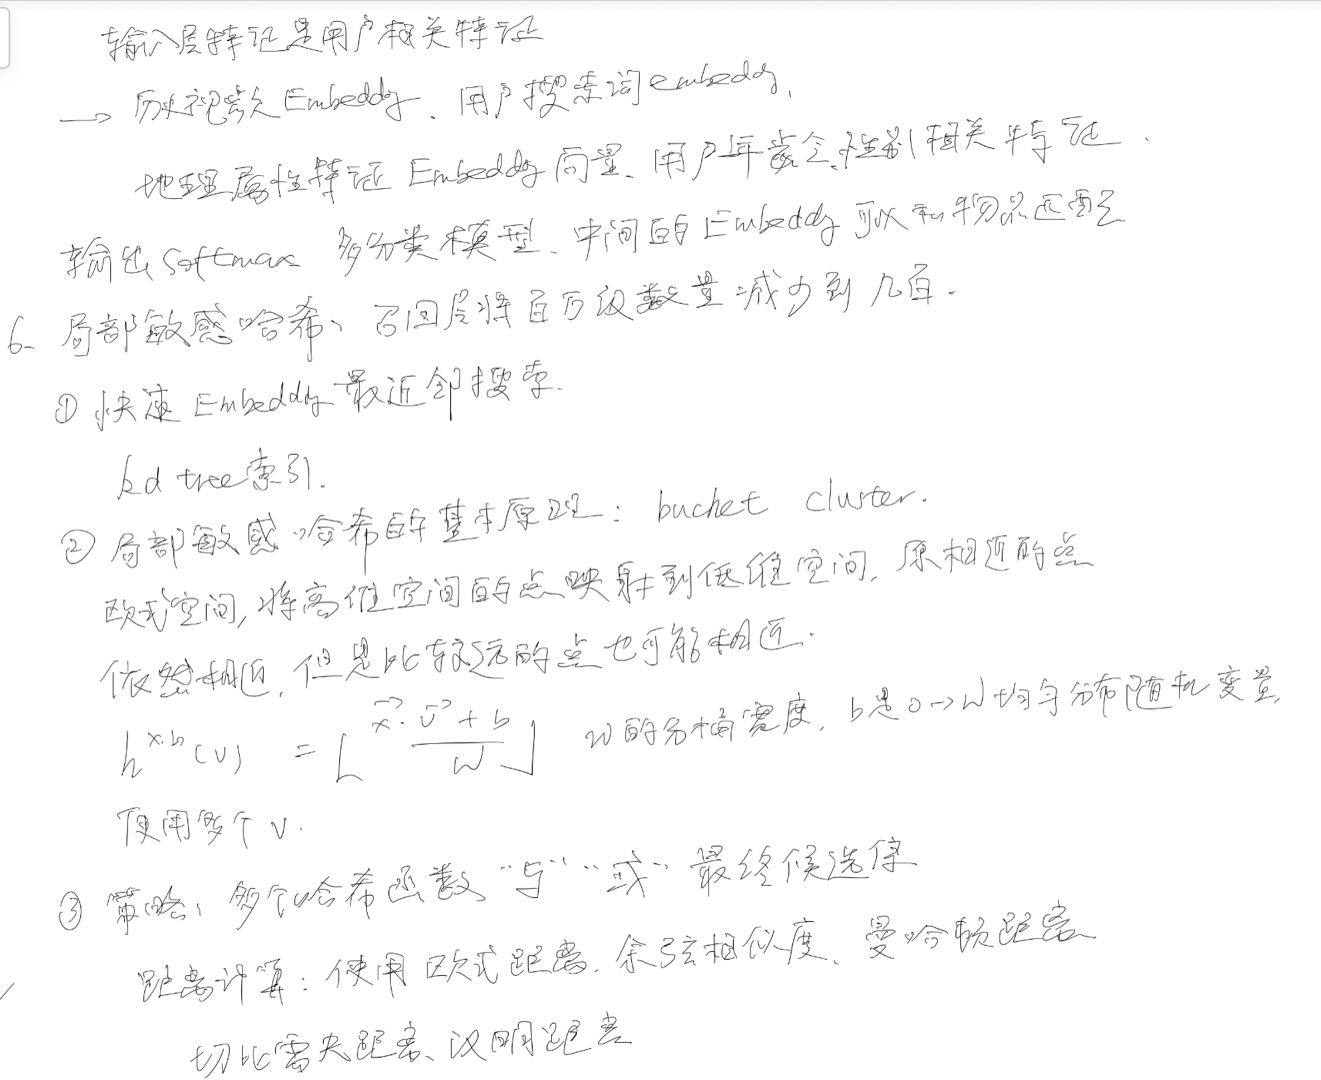 输入层特征是用户相关特征
→ 历史视频 Embedding、用户搜索词embedding,
地理属性特征 Embedding 向量、用户年龄、性别相关特征.
输出 Softmax 多分类模型、中间的 Embedding 可以和物品匹配
6. 局部敏感哈希、召回层将百万级数量减少到几百.
① 快速 Embedding 最近邻搜索.
kd tree索引.
② 局部敏感哈希的基本原理: bucket cluster.
欧式空间, 将高维空间的点映射到低维空间, 原相近的点
依然相近, 但是比较远的点也可能相近.
h^{x.b}(v) = ⌊(x⃗·v⃗+b)/W⌋ w的分桶宽度, b是0→W均匀分布随机变量,
使用多个v.
③ 策略: 多个哈希函数 "与" "或" 最终候选集
距离计算: 使用欧式距离、余弦相似度、曼哈顿距离
切比雪夫距离、汉明距离